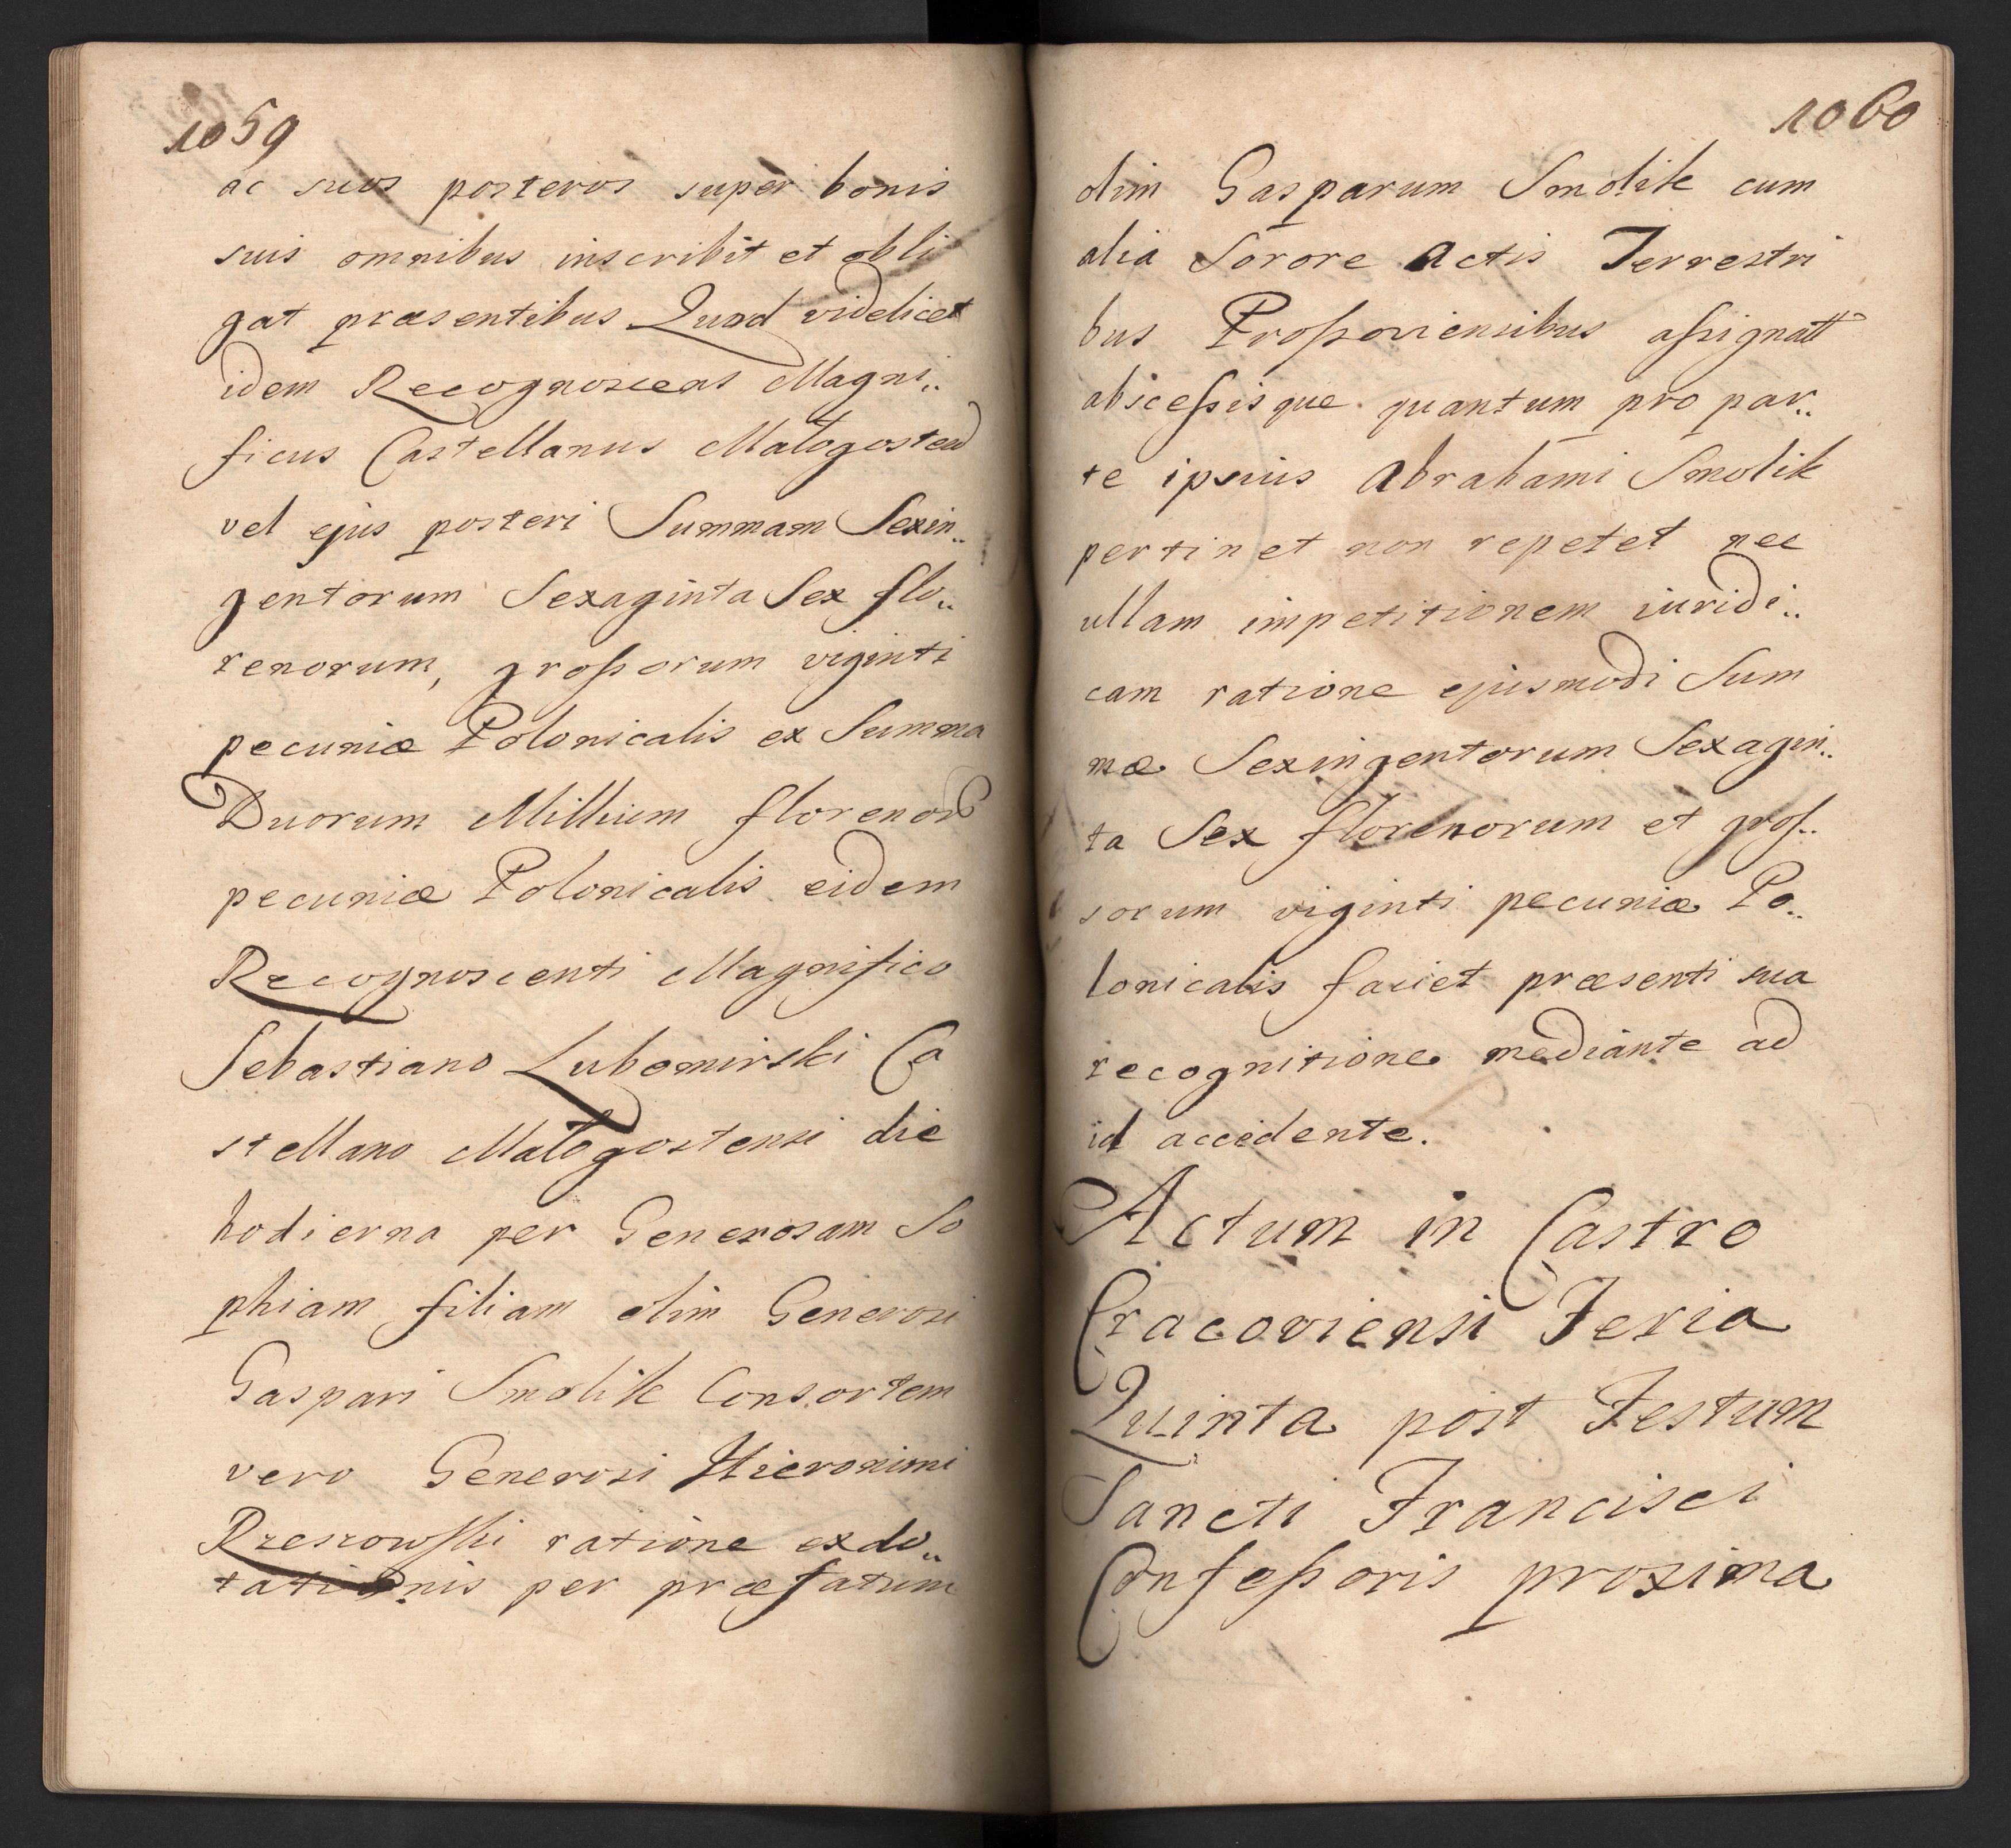 1059
ac suos posteros super bonis
suis omnibus inscribit et obli
gat præsentibus Quod videlicet
idem Recognoscens Magni..
ficus Castellanus Malogosten
vel ejus posteri Summam Sexin..
gentorum Sexaginta Sex flo..
renorum, grossorum viginti
pecuniæ Polonicalis ex Summa
Duorum Millium florenor
pecuniæ Polonicalis eidem
Recognoscenti Magnifico
Sebastiano Lubomirski Ca
stellano Malogostensi die
hodierna per Generosam So
phiam filiam olim Generosi
Gaspari Smolik Consortem
vero Generosi Hieronimi
Rzeszowski ratione exdo..
tationis per præfatum
1060
olim Gasparum Smolik cum
alia Sorore Actis Terrestri
bus Prossoviensibus assignatt
abscessisque quantum pro par..
te ipsius Abrahami Smolik
pertinet non repetet nec
ullam impetitionem iuridi..
cam ratione ejusmodi Sum
mæ Sexingentorum Sexagin..
ta Sex florenorum et gros..
sorum viginti pecuniæ Po..
lonicalis faciet præsenti sua
recognitione mediante ad
id accedente.
Actum in Castro
Cracoviensi Feria
Quinta post Festum
Sancti Francisci
Confessoris proxima